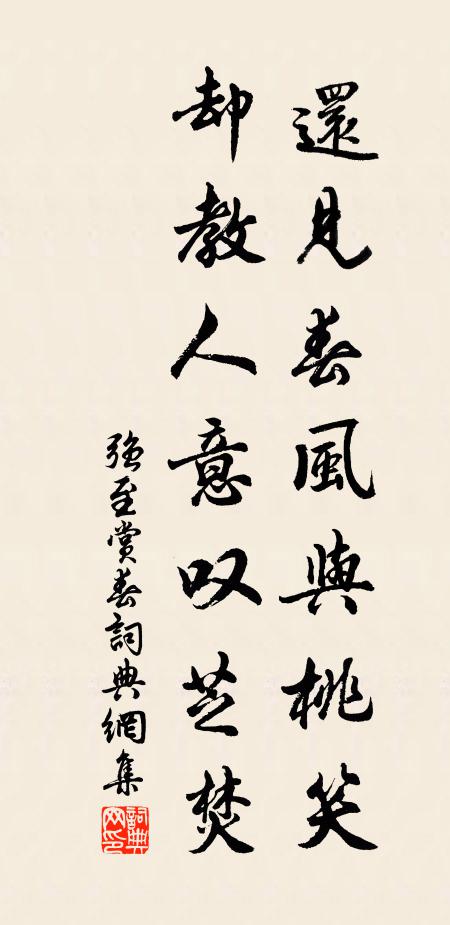 還見春風與桃笑
却教人意叹芝焚
強至賞春詞典網集
詞典網印